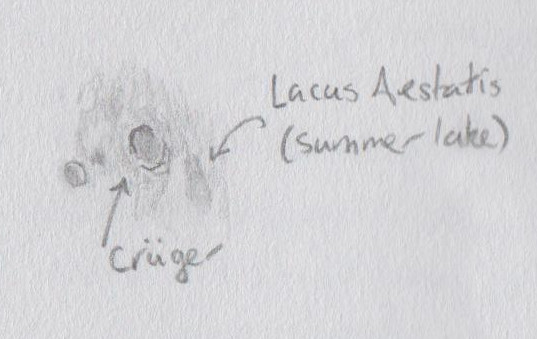 Lacus Aestatis
(summer lake)
Crüger